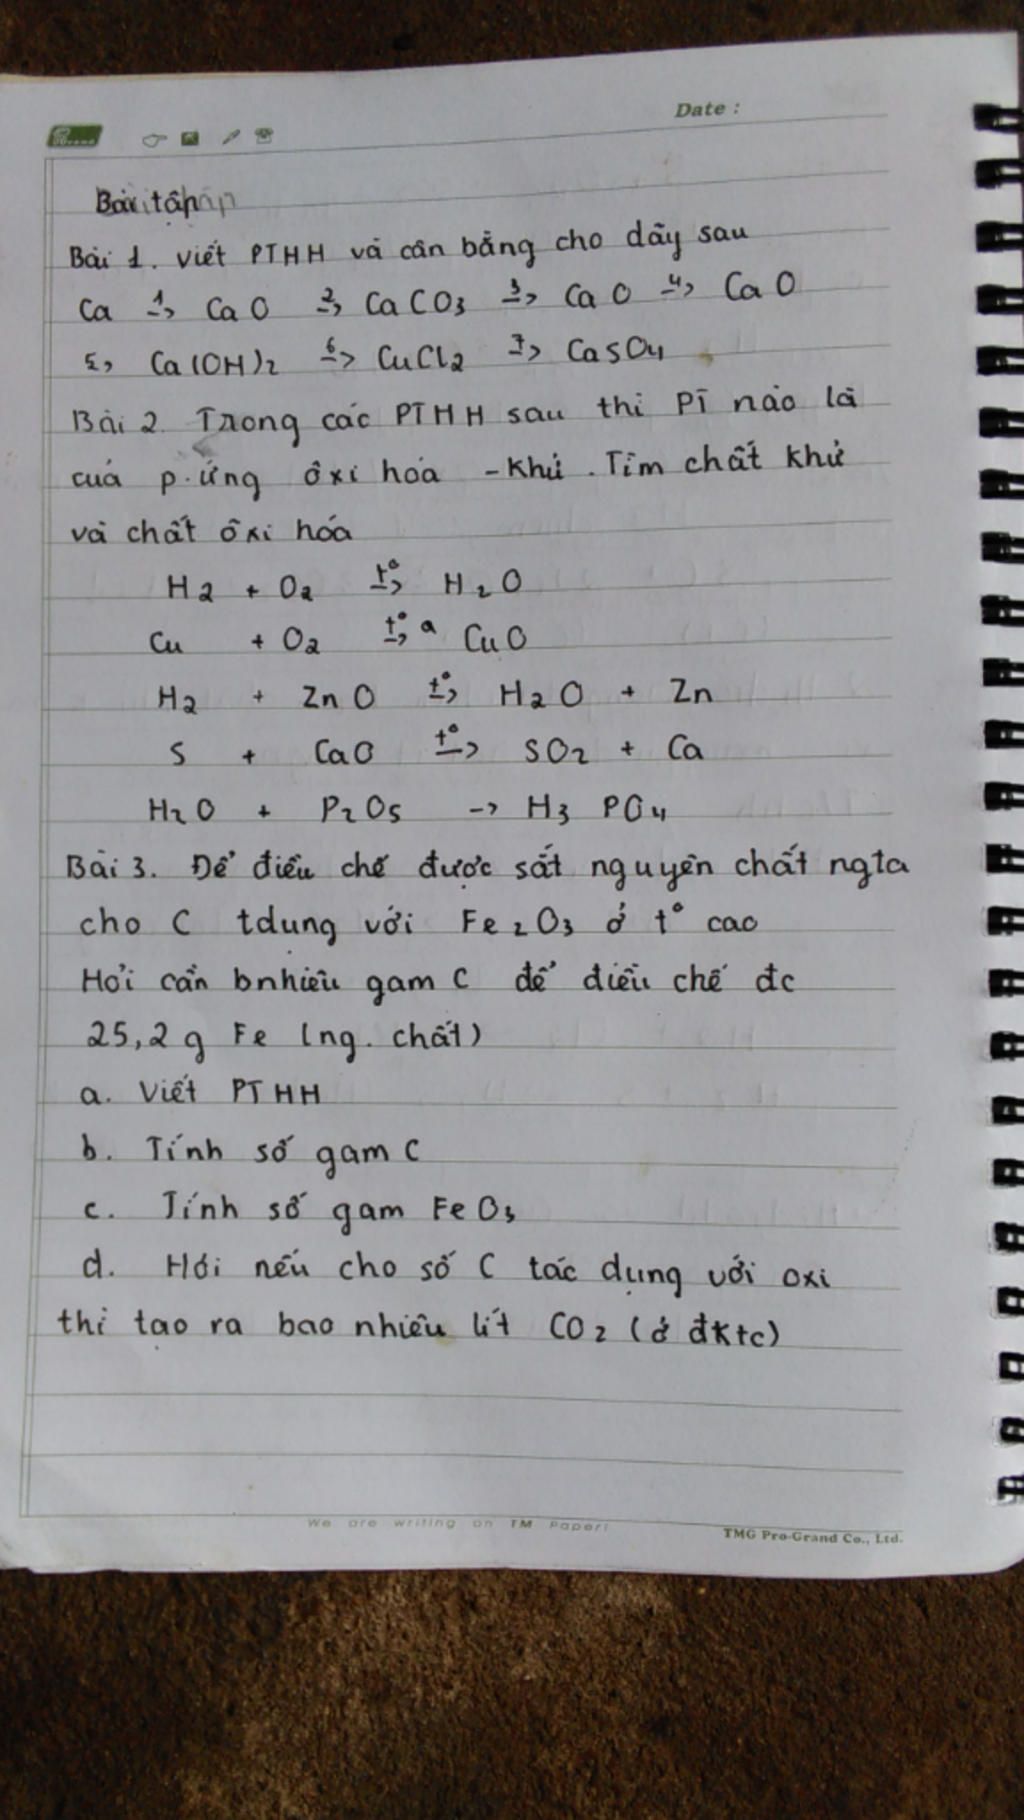 Date :
Bài tập
Bài 1. viết PTHH và cân bằng cho dãy sau
Ca 1→ CaO 2→ CaCO3 3→ CaO 4→ CaO
5→ Ca(OH)2 6→ CuCl2 7→ CaSO4
Bài 2 Trong các PTHH sau thì PT nào là
của p.ứng ôxi hóa - khử. Tìm chất khử
và chất ôxi hóa
H2 + O2 t°→ H2O
Cu + O2 t°→ a CuO
H2 + ZnO t°→ H2O + Zn
S + CaO t°→ SO2 + Ca
H2O + P2O5 → H3 PO4
Bài 3. Để điều chế được sắt nguyên chất ngta
cho C tdung với Fe2O3 ở t° cao
Hỏi cần bnhiêu gam C để điều chế đc
25,2 g Fe (ng. chất)
a. Viết PTHH
b. Tính số gam C
c. Tính số gam FeO3
d. Hỏi nếu cho số C tác dụng với oxi
thì tạo ra bao nhiêu lít CO2 (ở đktc)
We are writing on TM Paper!
TMG Pro-Grand Co., Ltd.